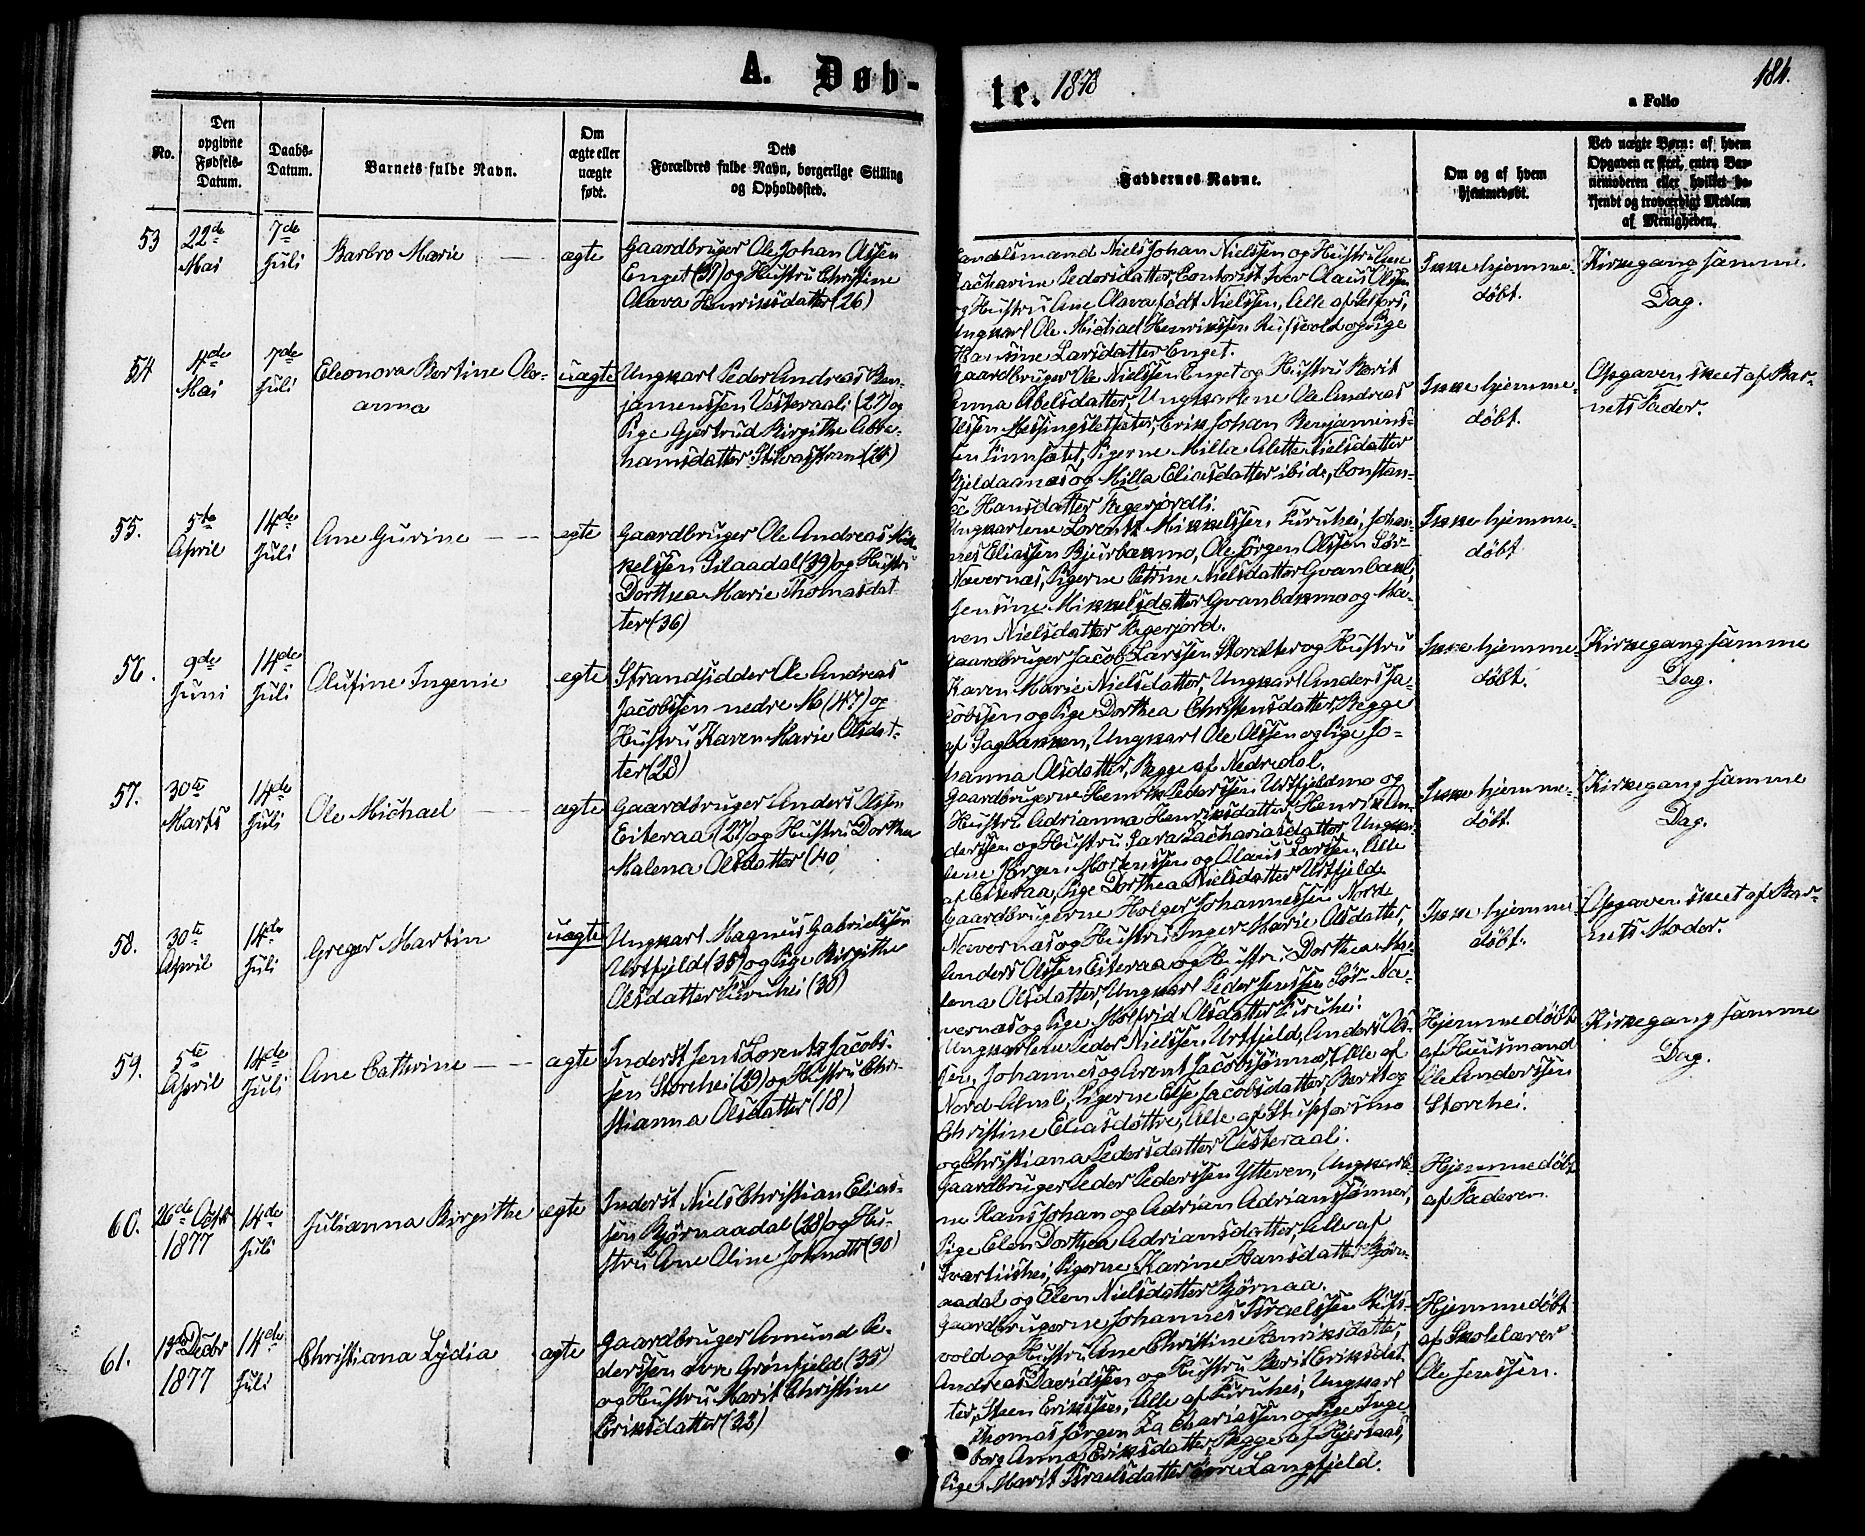 A. Døb-
te. 1878
181.
a Folio
No.
Den
opgivne
Fødsels-
Datum.
Daabs-
Datum.
Barnets fulde Navn.
Om
ægte eller
uægte
født.
Dets
Forældres fulde Navn, borgerlige Stilling
og Opholdssted.
Faddernes Navne.
Om og af hvem
hjemmedøbt.
Ved uægte Børn: af hvem
Opgaven er skeet, enten Bar-
nemoderen eller hvilket be-
kjendt og troværdigt Medlem
af Menigheden.
53
22de
Mai
7de
Juli
Barbro Marie
ægte
Gaardbruger Ole Johan Olssen
Enget (37) og Hustru Christine
Olava Henriksdatter (26)
Landelsmand Niels Johan Nielssen og Hustru
Zacharine Pedersdatter, Contorist Iver Olaus Olssen
og Hustru Ane Olava født Nielssen, Alle af
Ungkarl Ole Michael Henrikssen Rufsvold og Pige
Hansine Larsdatter Enget.
Ikke hjemme-
døbt.
Kirkegang samme
Dag.
54
4de
Mai
7de
Juli
Eleonora Bertine Ole-
anna
uægte
Ungkarl Peder Andreas Ben-
jamenssen Vesteraali (27) og
Pige Gjertrud Birgithe Abra-
hamsdatter Stilvasstrand (24)
Gaardbruger Ole Nielssen Enget og Hustru Berit
Anna Abelsdatter, Ungkarlene Ole Andreas
Olssen Messingsletsæter, Erik Johan Benjamins-
sen Finnsæter, Pigerne Milla Alette Nielsdatter
Kjeldaanæs og Milla Eliasdatter ibide, Constan-
ce HansdatterÆgerjordli.
Ikke hjemme-
døbt.
Opgaven skeet af Bar-
nets Fader.
55.
5te
April
14de
Juli
Ane Gurine
ægte
Gaardbruger Ole Andreas Mik-
kelssen Pilaadal (39) og Hustru
Dorthea Marie Thomasdat-
ter (36)
Ungkarlene Lorents Mikkelssen Furuhei, Johan-
nes Eliassen Bjurbækmo, Ole Jørgen Olssen Sør-
Nævernæs, Pigerne Petrine Nielsdatter
Jensine Mikkelsdatter Kvanbækmo og Ma-
ren Nielsdatter Ægerjord.
Ikke hjemme-
døbt
56.
9de
Juni
14de
Juli
Olufine Ingenie
ægte
Strandsidder Ole Andreas
Jacobssen nedre Mo (47) og
Hustru Karen Marie Olsdat-
ter (28)
Gaardbruger Jacob Larssen Storalter og Hustru
Karen Marie Nielsdatter, Ungkarl Anders Ja-
cobssen og Pige Dorthea Christensdatter, Begge
af Dagbakken, Ungkarl Ole Olssen og Pige Jo-
hanna Olsdatter, Begge af Nedredal.
Ikke hjemme-
døbt.
Kirkegang samme
Dag.
57.
30te
Marts
14de
Juli
Ole Michael
ægte
Gaardbruger Anders Olssen
Eiteraa (27) og Hustru Dorthea
Malena Olsdatter (40)
Gaardbrugerne Henrik Pederssen Urtfjeldmo og
Hustru Adrianna Henriksdatter, Henrik An-
derssen og Hustru Sara Zachariasdatter, Ungkar-
lene Jørgen Mortenssen og Olaus Larssen, Alle
af Eiteraa, Pige Dorthea Nielsdatter Urtfjeld.
Ikke hjemme-
døbt.
Kirkegang samme
Dag.
58.
30te
April
14de
Juli
Greger Martin
uægte
Ungkarl Magnus Gabrielssen
Urtfjeld (35) og Pige Birgithe
Olsdatter Furuhei (30)
Gaardbrugerne Holger Johannessen Nordre
Nævernæs og Hustru Inger Marie Olsdatter,
Anders Olssen Eiteraa og Hustru Dorthea Ma-
lena Olsdatter, Ungkarl Peder Jenssen Sør-Næ-
vernæs og Pige Olsdatter Furuhei.
Ikke hjemme-
døbt.
Opgaven skeet af Bar-
nets Moder.
59.
5te
April
14de
Juli
Ane Cathrine
ægte
Inderst Jens Lorents Jacobs-
sen Storehei (29) og Hustru Chri-
stianna Olsdatter (18)
Ungkarlene Peder Nielssen Urtfjeld, Anders Ols-
sen, Johannes og Arent Jacobssønner, Alle af
Nord-Almli, Pigerne Else Jacobsdatter, Berit og
Christine Eliasdøttre, Alle af Stupforsmo
og Christiana Pedersdatter Vesteraali.
Hjemmedøbt
af Huusmand
Ole Anderssen
Storehei.
Kirkegang samme
Dag.
60.
26de Octbr
1877
14de
Juli
Julianna Birgithe
ægte
Inderst Niels Christian Elias-
sen Bjørnaadal (28) og Hu-
stru Ane Oline Johnsdtr (30)
Gaardbruger Peder Pederssen Ytteren, Ungkarle-
ne Hans Johan og Adrian Adrianssønner,
Pige Elen Dorthea Adriansdatter, Alle af
Svartiishei, Pigerne Karine Hansdatter Bjørn-
aadal og Elen Nielsdatter Bjørnaa.
Hjemmedøbt
af Faderen.
61.
13de Decbr
1877
14de
Juli
Christiana Lydia
ægte
Gaardbruger Amund Pe-
derssen øvre Grønfjeld (35)
og Hustru Marit Christine
Eriksdatter (32)
Gaardbrugerne Johannes Israelssen Rufs-
vold og Hustru Ane Christine Henriksdatter,
Andreas Davidssen og Hustru Berit Eriksdat-
ter, Steen Erikssen, Alle af Furuhei, Ungkarl
Thomas Jørgen Zachariassen og Pige Inge-
borg Anna Eriksdatter, Begge af
Pige Marit Israelsdatter øvre Langfjeld.
Hjemmedøbt
af Skolelærer
Ole Jenssen.